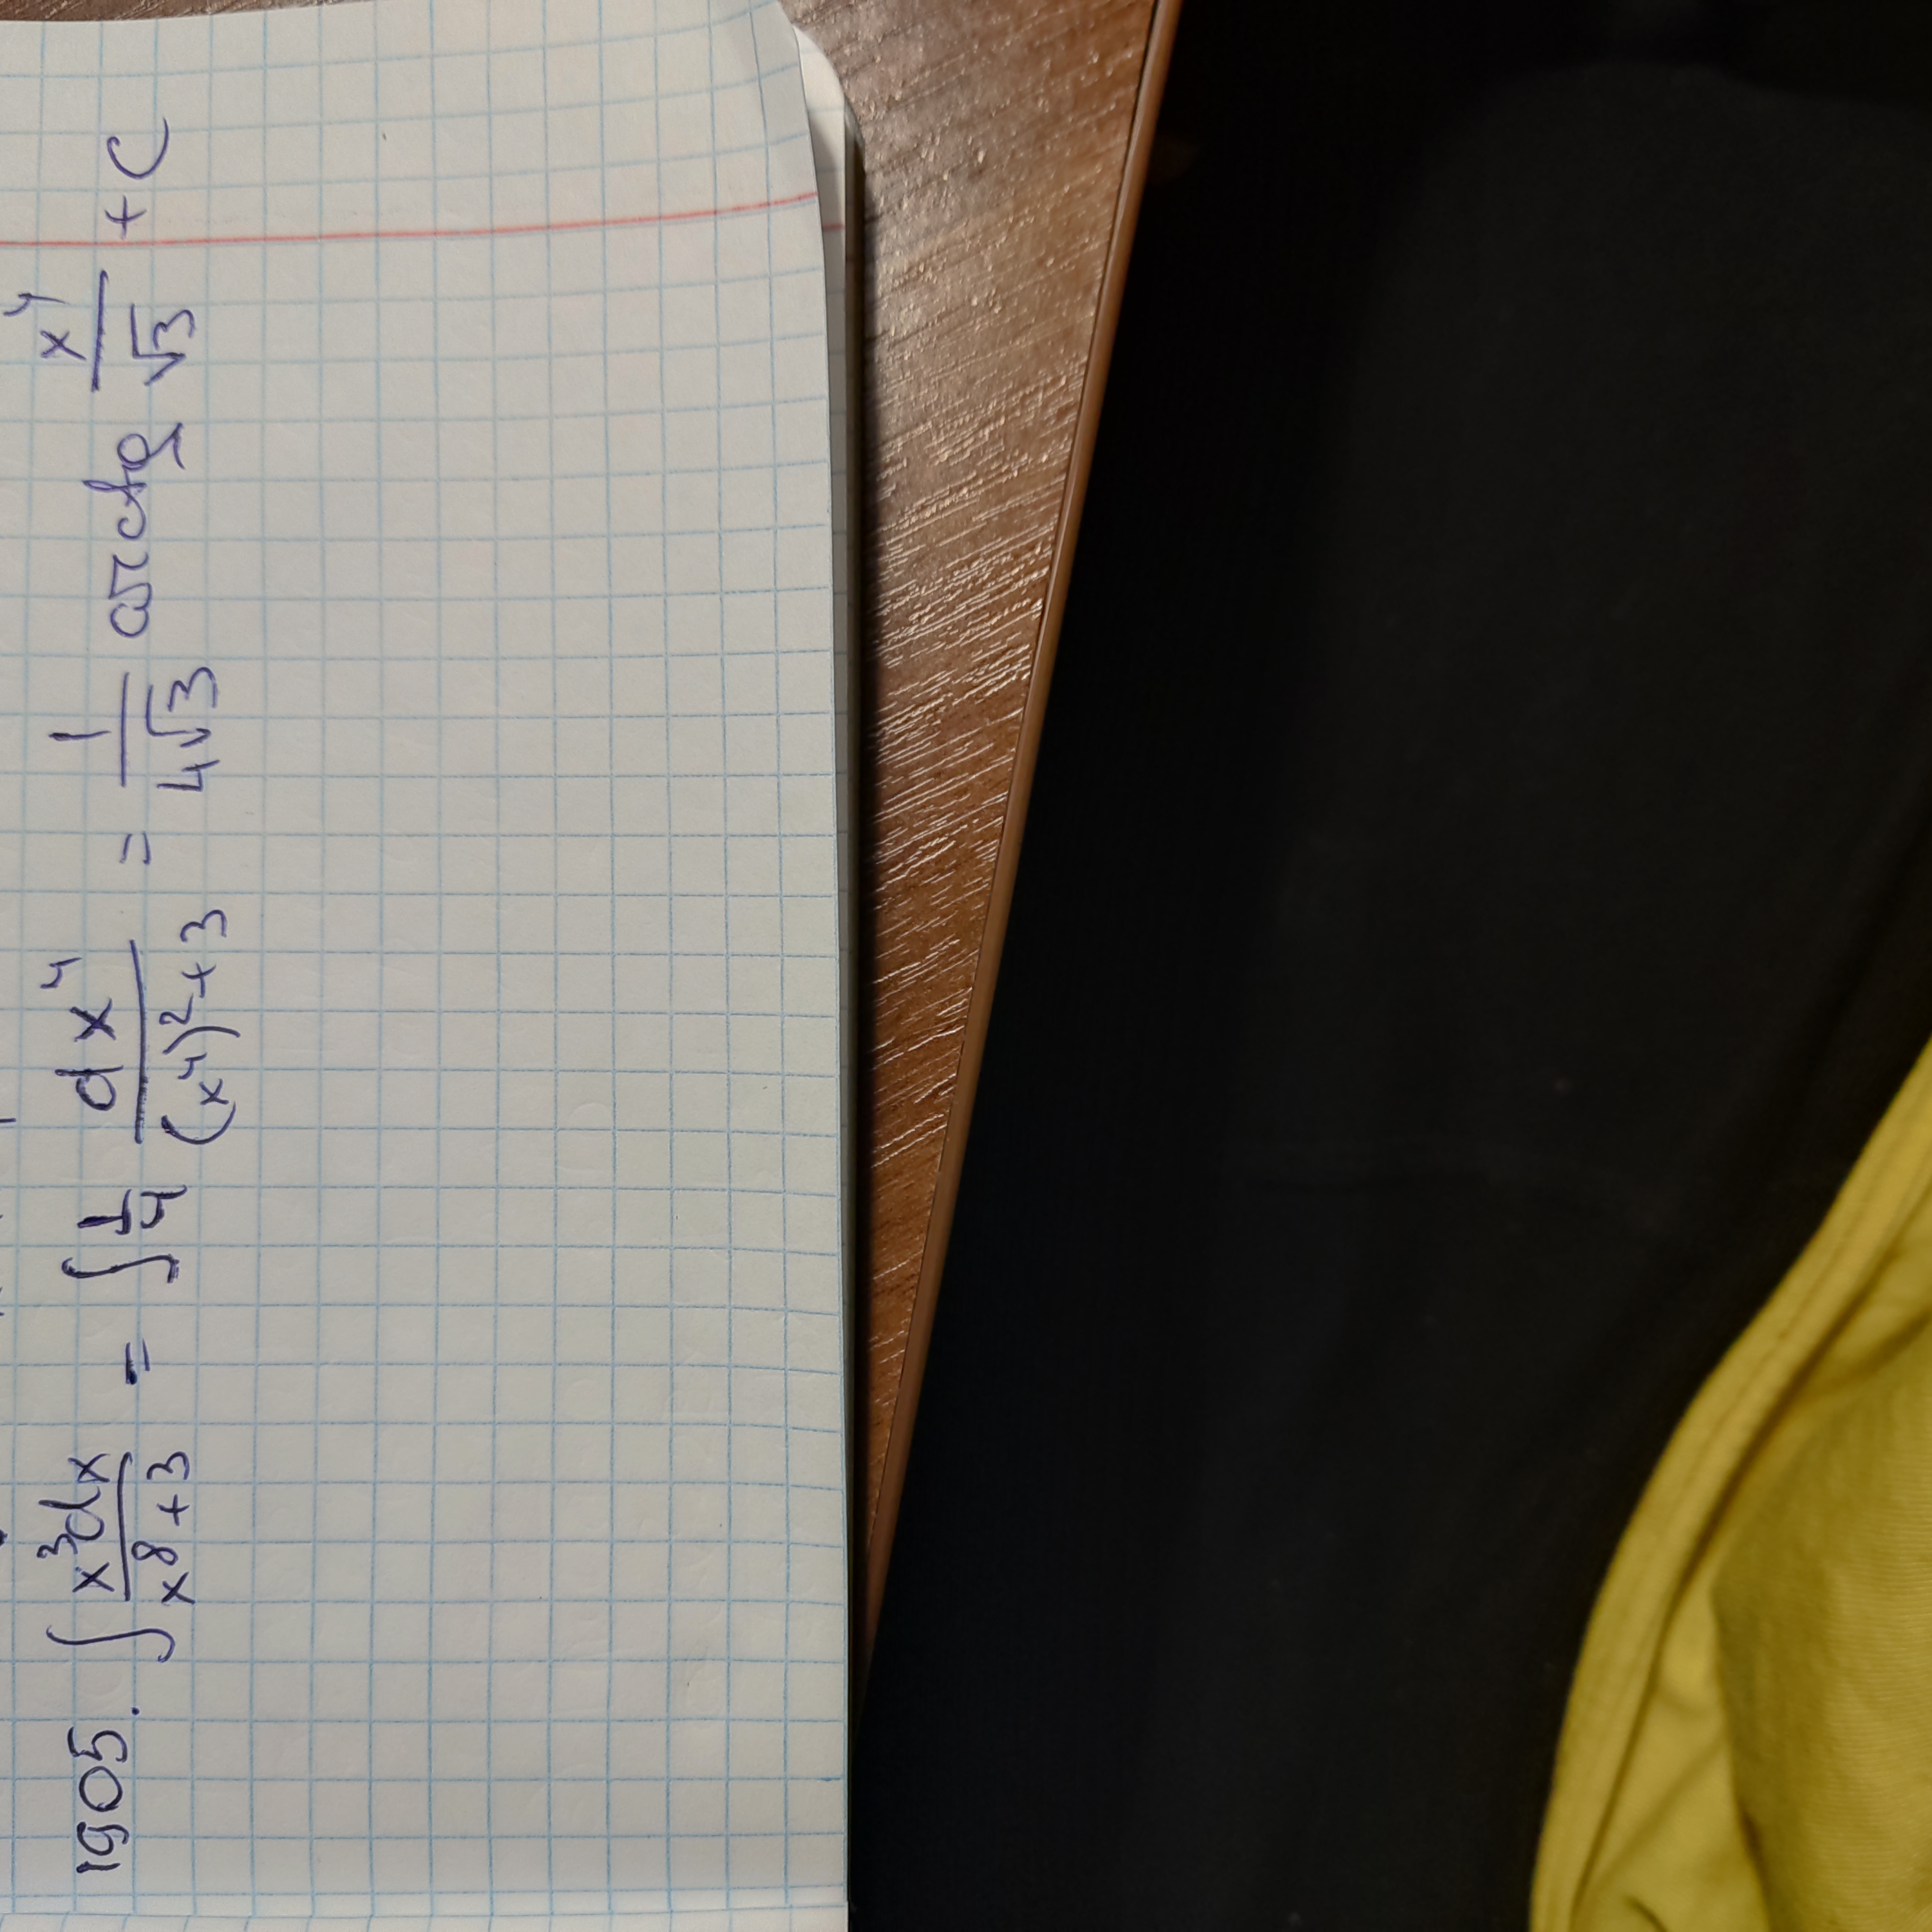 1905. ∫ x³dx / x⁸+3 = ∫ 1/4 dx⁴ / (x⁴)²+3 = 1 / 4√3 arctg x⁴/√3 + C